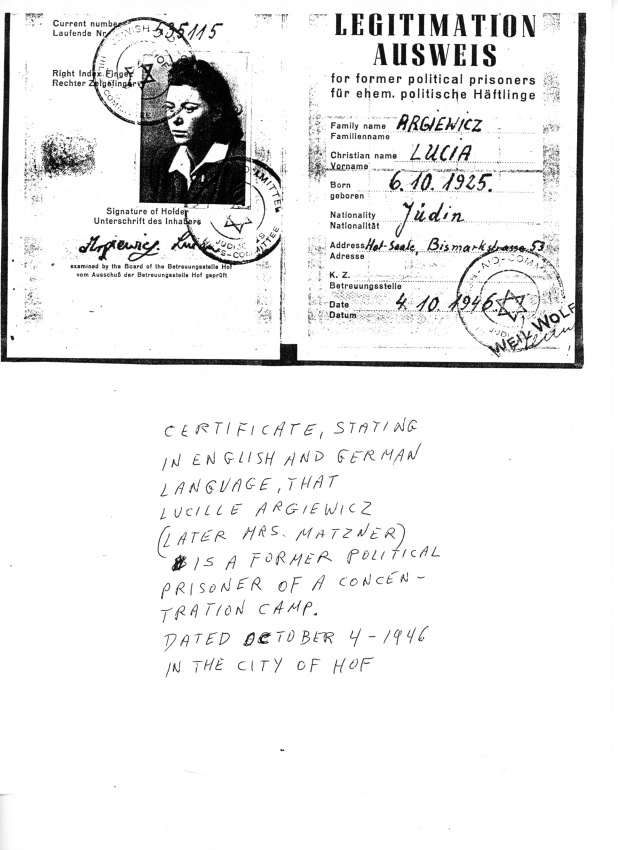 Current number
Laufende Nr.
535115
Right Index Finger
Rechter Zeigefinger
Signature of Holder
Unterschrift des Inhabers
Argiewicz
examined by the Board of the Betreuungsstelle Hof
vom Ausschuß der Betreuungsstelle Hof geprüft
LEGITIMATION
AUSWEIS
for former political prisoners
für ehem. politische Häftlinge
Family name ARGIEWICZ
Familienname
Christian name LUCIA
Vorname
Born 6.10.1925.
geboren
Nationality Jüdin
Nationalität
Address Hof-Saale, Bismarkstrasse 53
Adresse
K. Z.
Betreuungsstelle
Date 4.10.1946
Datum
WEIL WOLF
CERTIFICATE, STATING
IN ENGLISH AND GERMAN
LANGUAGE, THAT
LUCILLE ARGIEWICZ
(LATER MRS. MATZNER)
IS A FORMER POLITICAL
PRISONER OF A CONCEN-
TRATION CAMP.
DATED OCTOBER 4-1946
IN THE CITY OF HOF